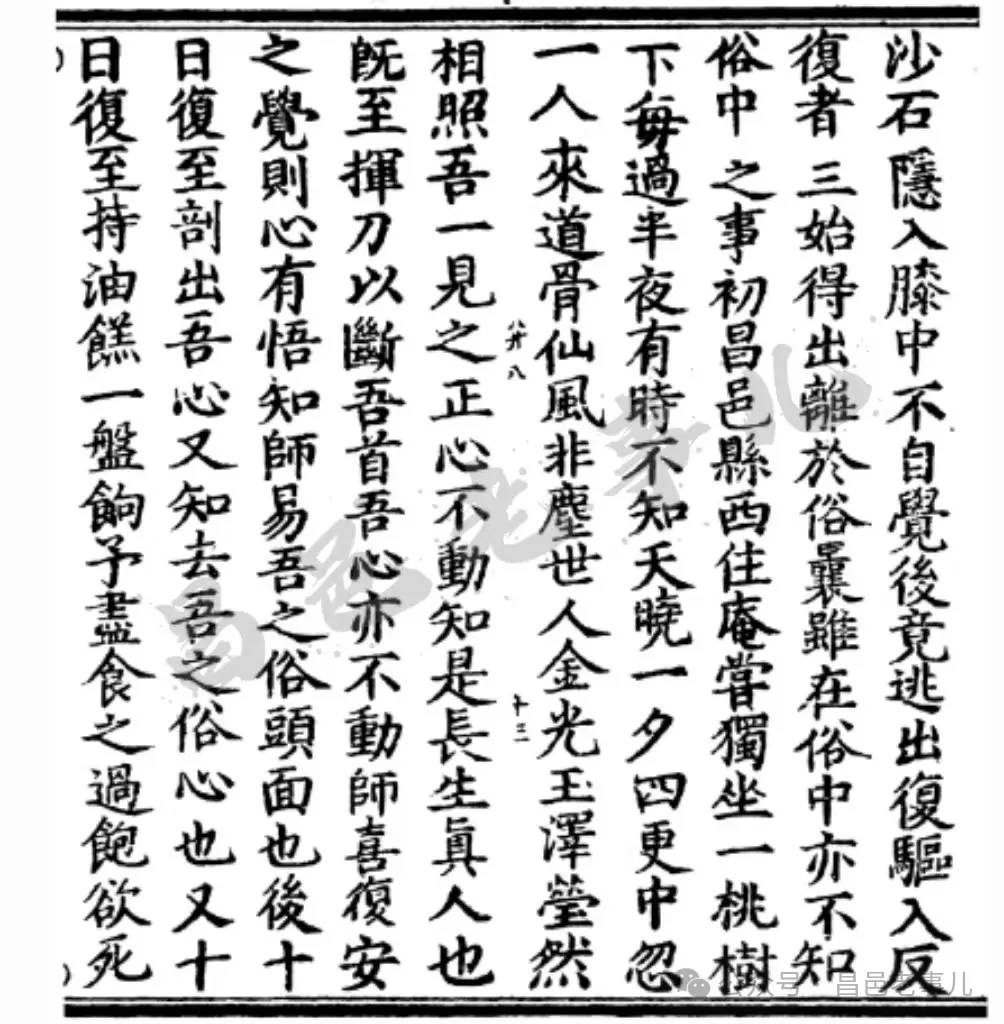 沙石隱入膝中不自覺後竟逃出復驅入反
復者三始得出離於俗曩雖在俗中亦不知
俗中之事初昌邑縣西住庵嘗獨坐一桃樹
下每過半夜有時不知天曉一夕四更中忽
一人來道骨仙風非塵世人金光玉澤瑩然
八廾八
十三
相照吾一見之正心不動知是長生真人也
既至揮刀以斷吾首吾心亦不動師喜復安
之覺則心有悟知師易吾之俗頭面也後十
日復至剖出吾心又知去吾之俗心也又十
日復至持油餻一盤餉予盡食之過飽欲死
昌邑老事儿
公众号 昌邑老事儿